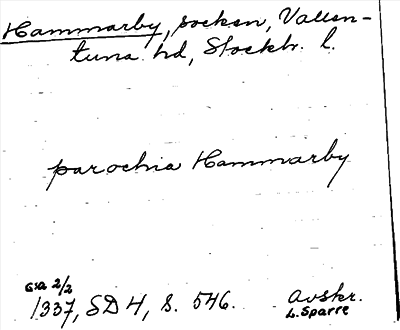 Hammarby, socken, Vallen-
tuna hd, Stockh. l.
parochia Hammarby
2/2
1337, SD 4, s. 546.
Avskr.
L. Sparre